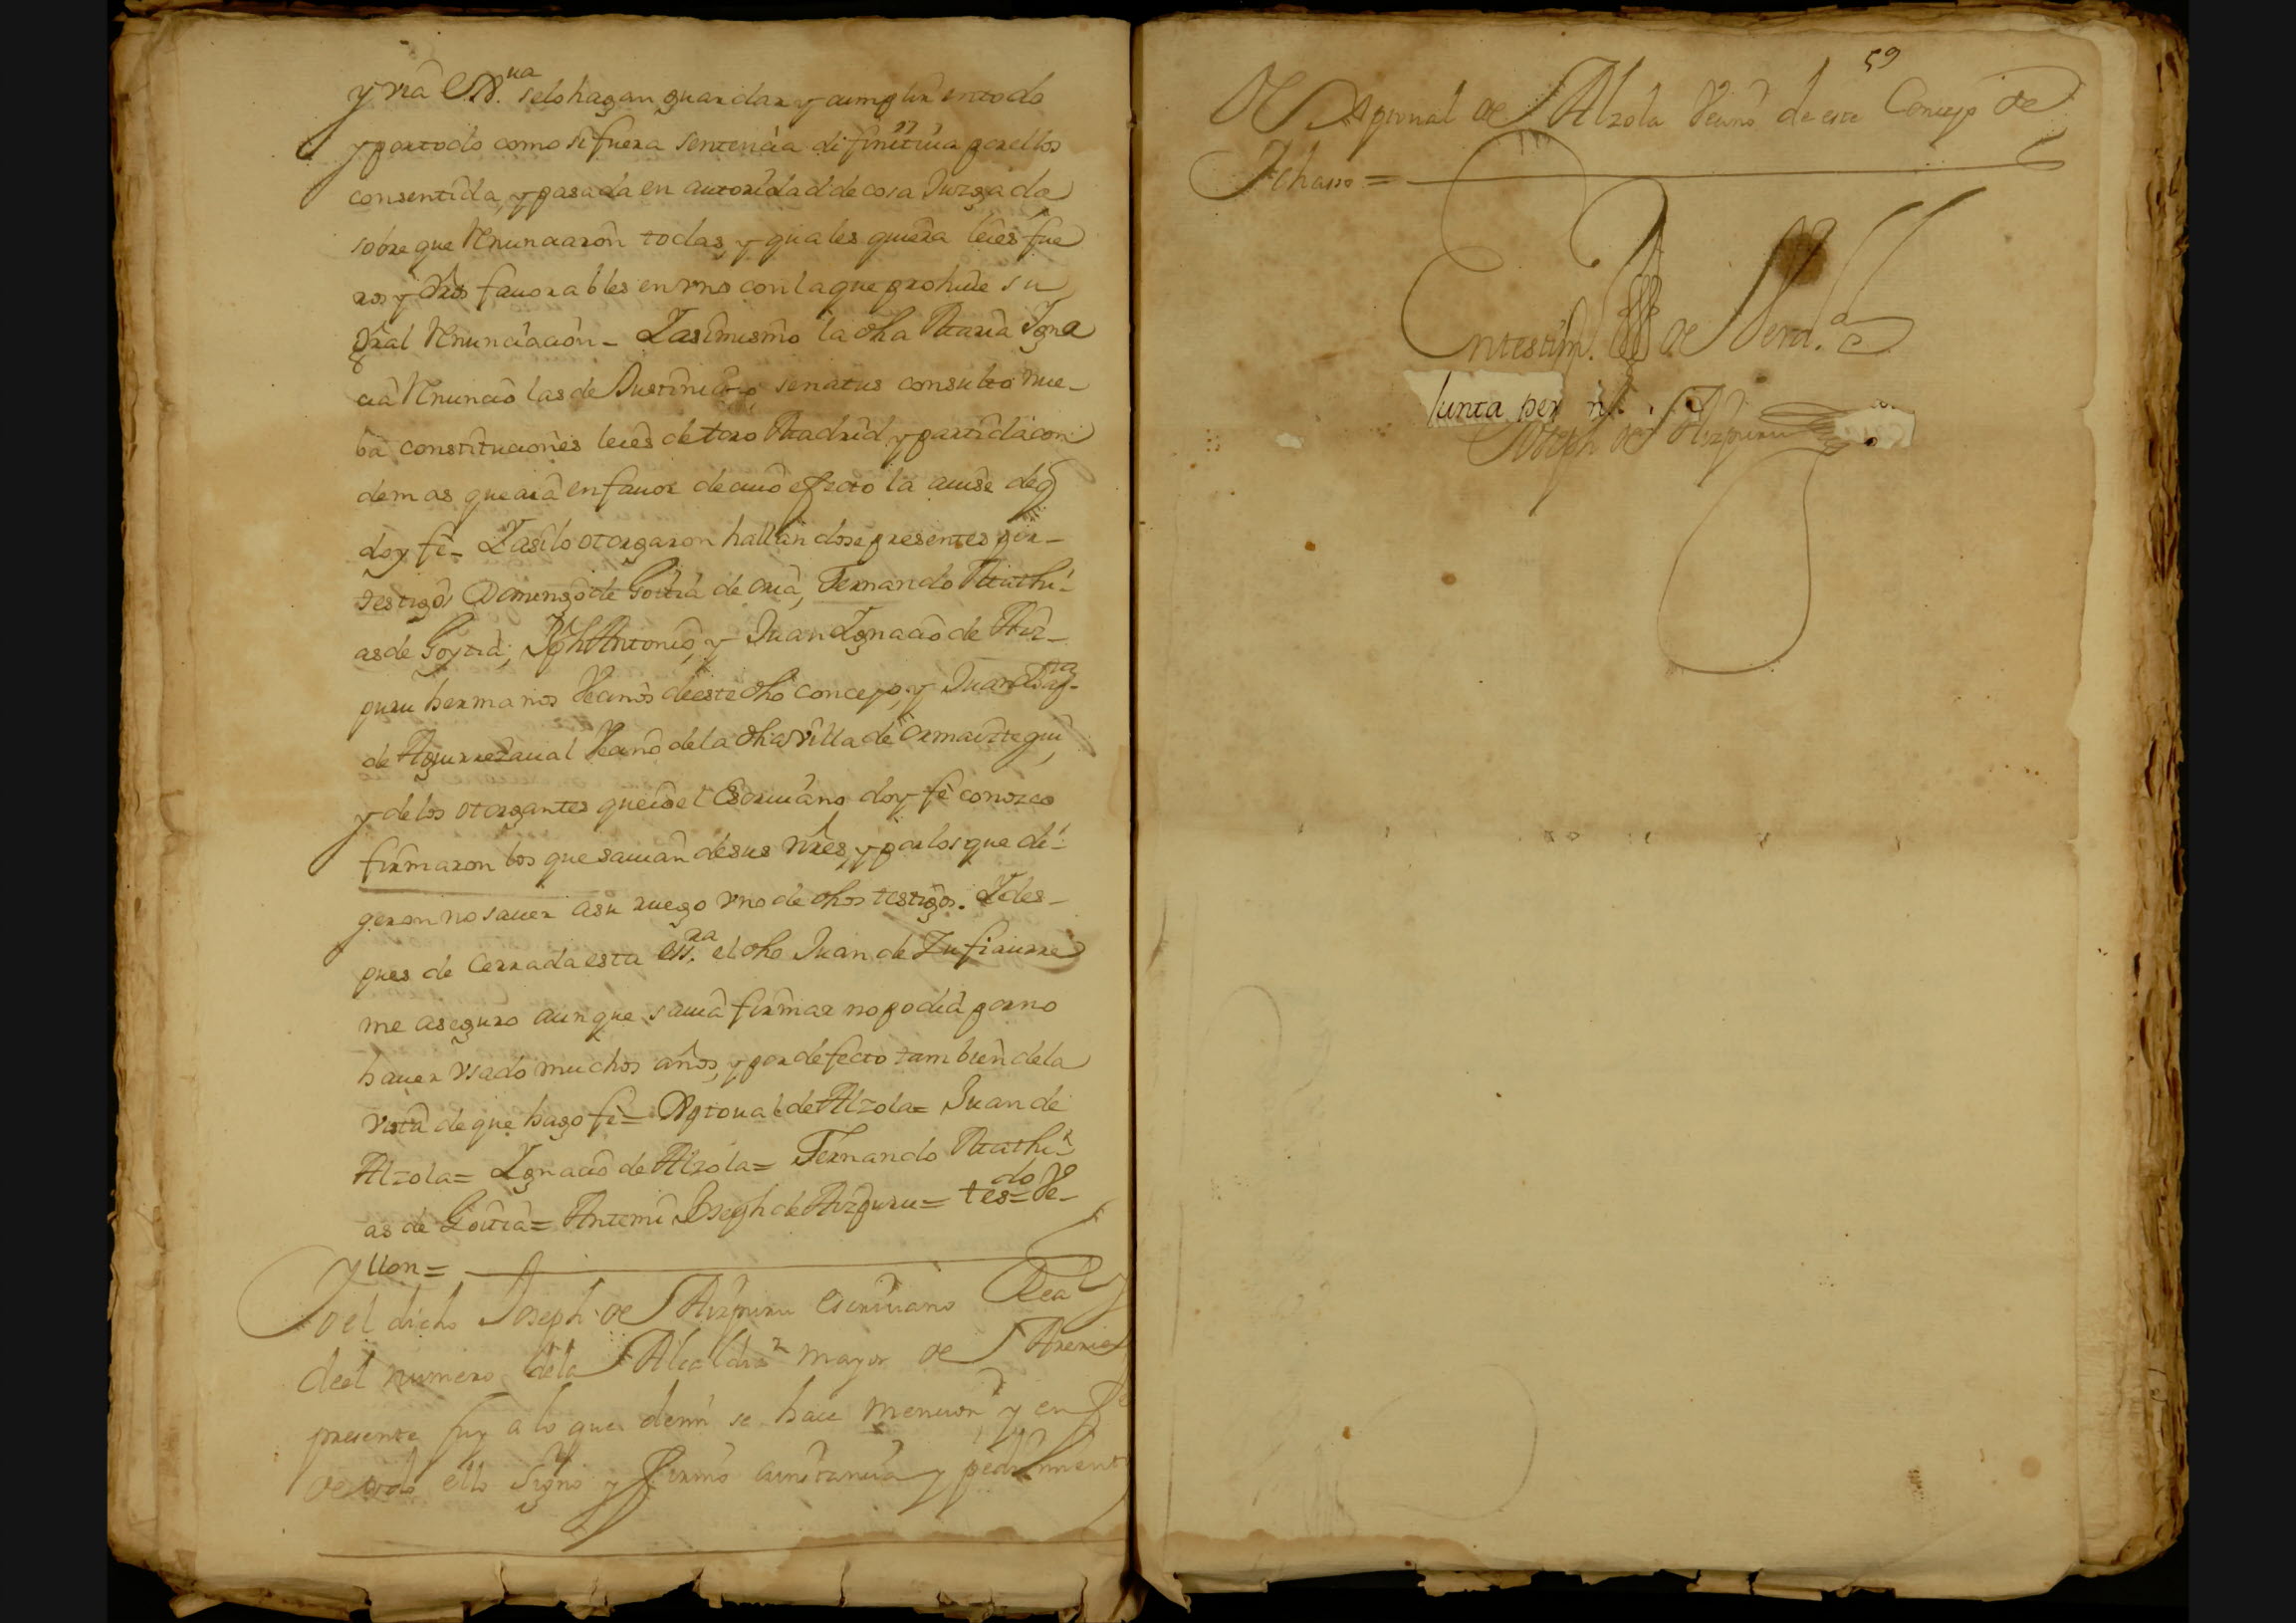 y rrâ Esna. selo hagan guardar y cumplir entodo
y portodo como si fuera sentencia difinitiua porellos
consentida, y pasada en autoridad de cosa Juzgada
sobre que Renunciaron todas, y quales quiera leies fue
ros y dros fauorables en vno con la que prohiue su
gral Renunciacion - Y asimismo la dha Maria Igna
cia Renuncio las de Justiniano, senatus consulto nue-
ba constituciones leies de toro Madrid, y partida con
demas que aia en fauor de cuio efecto la auise de q
doy fe - Y asi lo otorgaron hallandose presentes por-
testigos Domingo de Goitia de oria, Fernando Mathi-
as de Goytia, Jph Antonio, y Juan Ignacio de Aiz-
puru hermanos Vecinos de este dho concejo, y Juan
de Aguirrezaual Vecino dela dha villa de ormaiztegui,
y delos otorgantes que io el Escriuano doy fe conozco
firmaron los que sauian de sus nres, y por los que di-
geron no sauer a su ruego vno de dhos testigos. Y des-
pues de Cerrada esta essra. el dho Juan de Zufiaurre
me aseguro aunque sauia firmar no podia por no
hauer vsado muchos años, y por defecto tambien dela
vista de que hago fe = Xptoual de Alzola = Juan de
Alzola = Ignacio de Alzola = Fernando Mathi-
as de Goitia = Antemi Joseph de Aizpuru = tesdo = Ve-
yllon =
Yo el dicho Joseph de Aizpuru escriuano Real y
del numero dela Alcaldia mayor de Areria
presente fuy a lo que demi se hace mencion y en fe
de todo ello signo y firmo a instancia y pedimento
59
de Xptoual de Alzola Vecino de este Concejo de
Ychasso =
En testim. de Verd.
Junta per
Joseph de Aizpuru